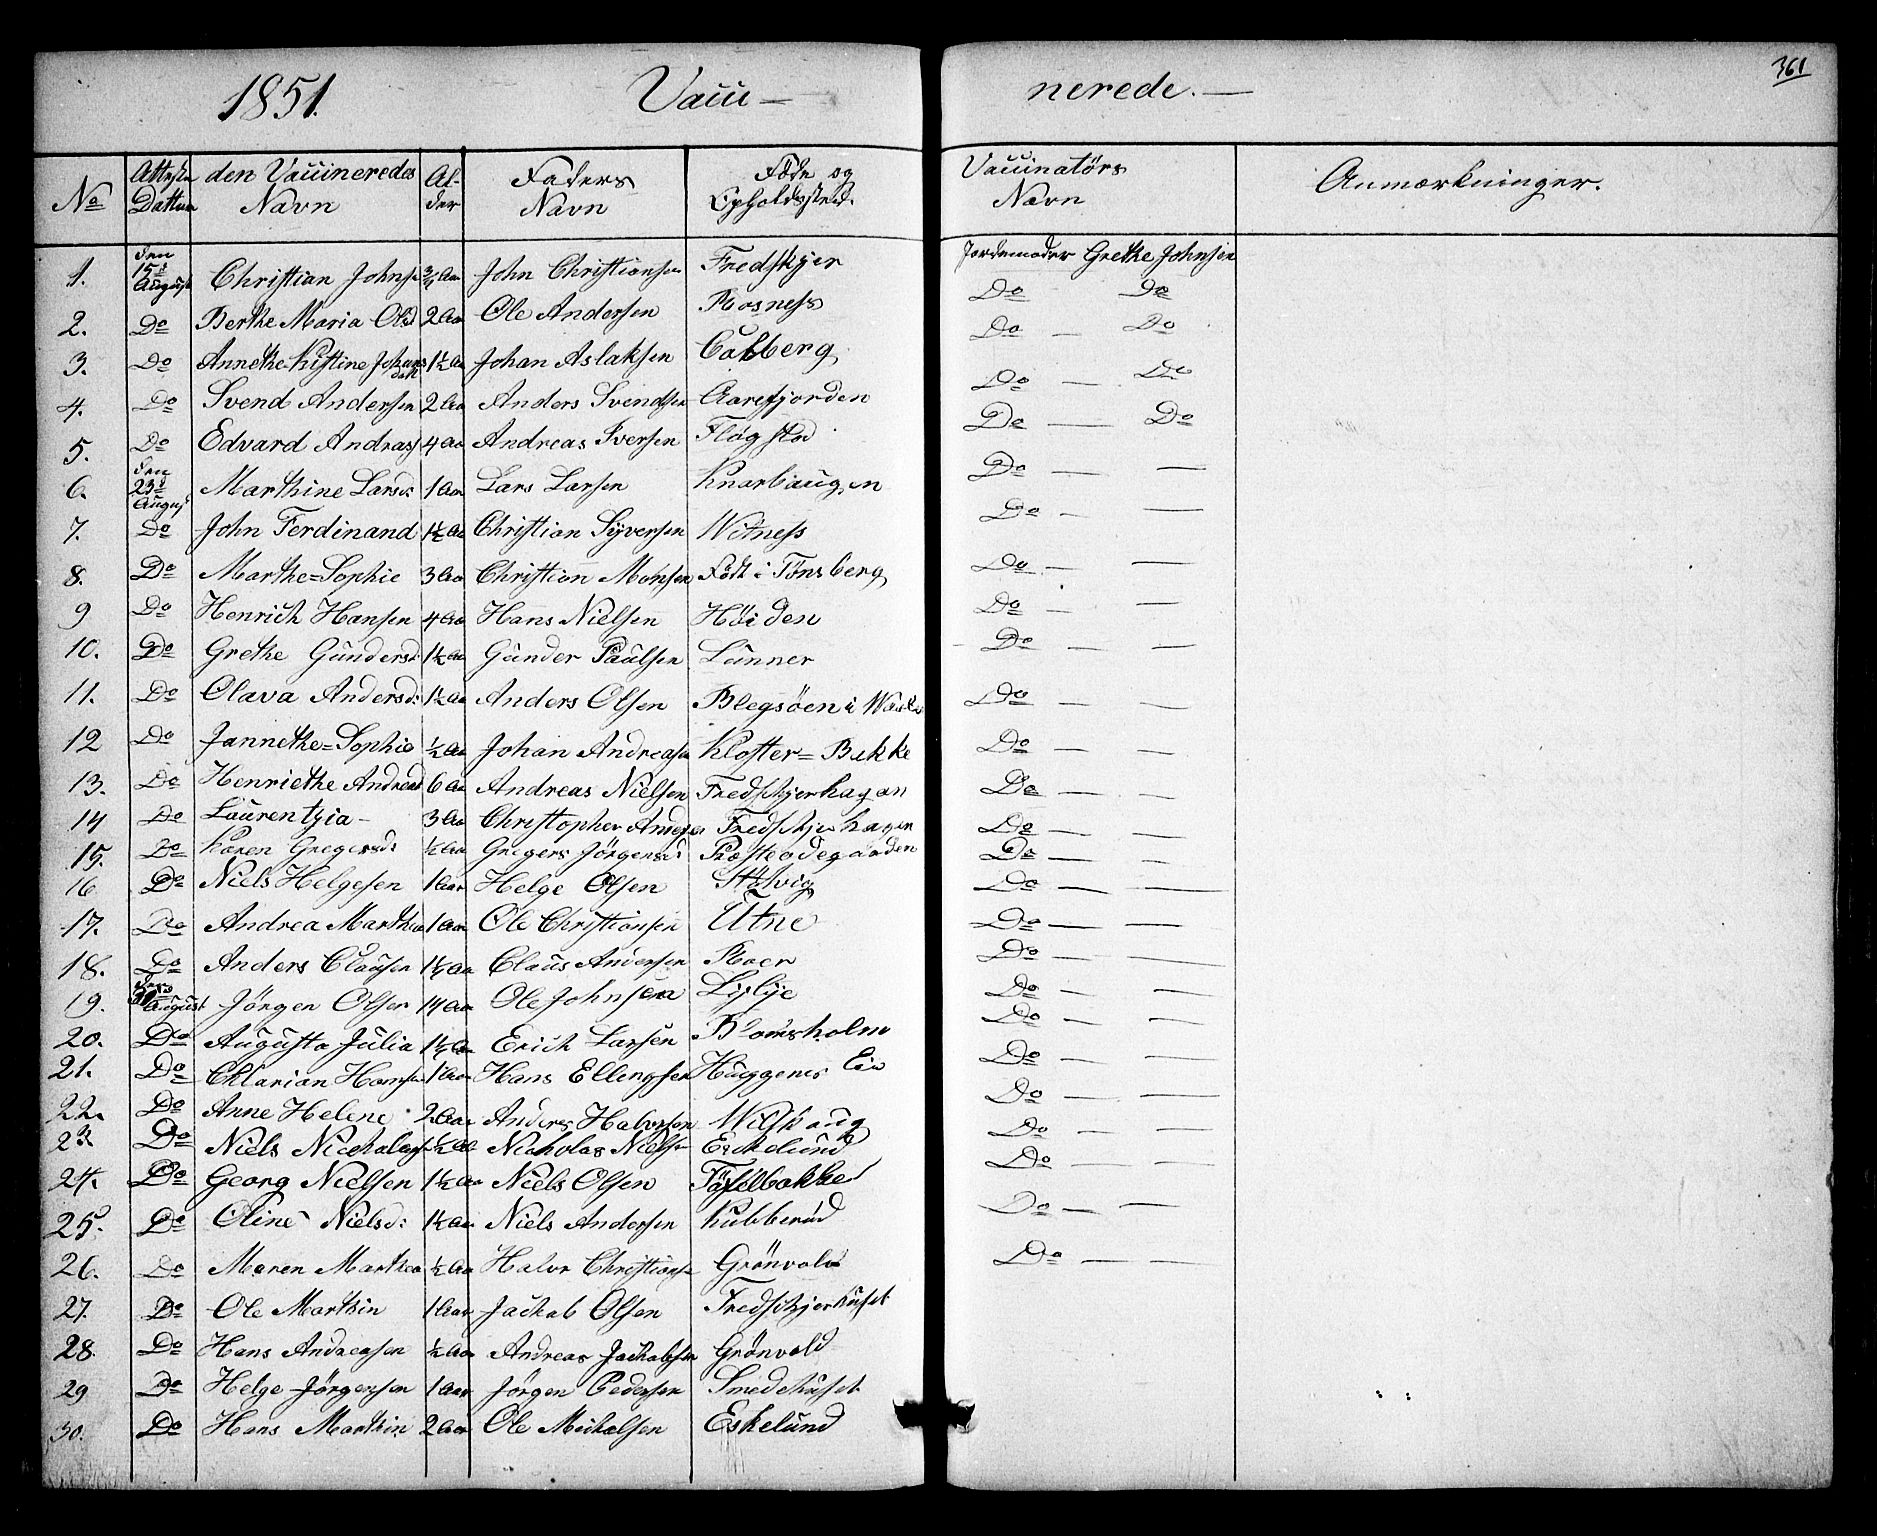 361
1851. Vacci— nerede.—
No Attestens Dattum den Vaccineredes Navn Alder Faders Navn Föde og Opholdssted. Vaccinatörs Navn Anmærkninger.
1. den 15d August Christian Johns 3/4 Aar John Christiansen Fredskjer Jordemoder Grethe Johnsen
2. Do Berthe Maria Olsd 2 Aar Ole Andersen Rosness Do Do
3. Do Annethe Kistine Johansdatt 1½ Aar Johan Aslaksen Calberg Do — Do
4. Do Svend Andersen 2 Aar Anders Svendsen Aarefjorden Do — Do
5. Do Edvard Andreas 4 Aar Andreas Iversen Do — Do
6. den 23d August Marthine Larsd: 1 Aar Lars Larsen Knarhaugen Do — —
7. Do John Ferdinand 1½ Aar Christian Syversen Witness Do — —
8. Do Marthe=Sophie 3 Aar Christian Monsen Födt i Tönsberg Do — —
9 Do Henrich Hansen 4 Aar Hans Nielsen Höiden Do — —
10. Do Grethe Gundersd: 1½ Aar Gunder Paulsen Lunner Do — —
11. Do Olava Andersd: 1½ Aar Anders Olsen Blegsöen i Do — —
12 Do Jannethe=Sophie ½ Aar Johan Andreasen Kloster=Bakke Do — —
13. Do Henriethe Andreas 6 Aar Andreas Nielsen Fredschjerhagen Do — —
14 Do Laurentzia— 3 Aar Christopher Anders Fredschjerhagen Do — —
15. Do Karen Gregersd: ½ Aar Gregers Jörgens Præsteodegaarden Do — —
16 Do Niels Helgesen 1 Aar Helge Olsen Do — —
17. Do Andrea Marthea 1 Aar Ole Christiansen Utne Do — —
18. Do Anders Clausen 1½ Aar Claus Andersen Roer Do — —
19. den August Jörgen Olsen 14 Aar Ole Johnsen Do — —
20. Do Augusta Julia 1½ Aar Erich Larsen Blomsholm Do — —
21. Do Hansen 1 Aar Hans Ellingsen Huggenes Eie Do — —
22. Do Anne Helene 2 Aar Anders Halvorsen Do — —
23. Do Niels Nicholays ½ Aar Nicholas Nielsen Eschelund Do — —
24. Do Georg Nielsen 1½ Aar Niels Olsen Do — —
25. Do Oline Nielsd: 1½ Aar Niels Andersen Kubberud Do — —
26. Do Maren Marthea ½ Aar Halvr Christians Grönvold Do — —
27. Do Ole Marthin 1 Aar Jachob Olsen Fredschjerhuset
28. Do Hans Andreasen ½ Aar Andreas Jachobsen Grönvold
29 Do Helge Jörgensen 1 Aar Jörgen Pedersen Smedehuset
30. Do Hans Marthin 2 Aar Ole Michelsen Eskelund